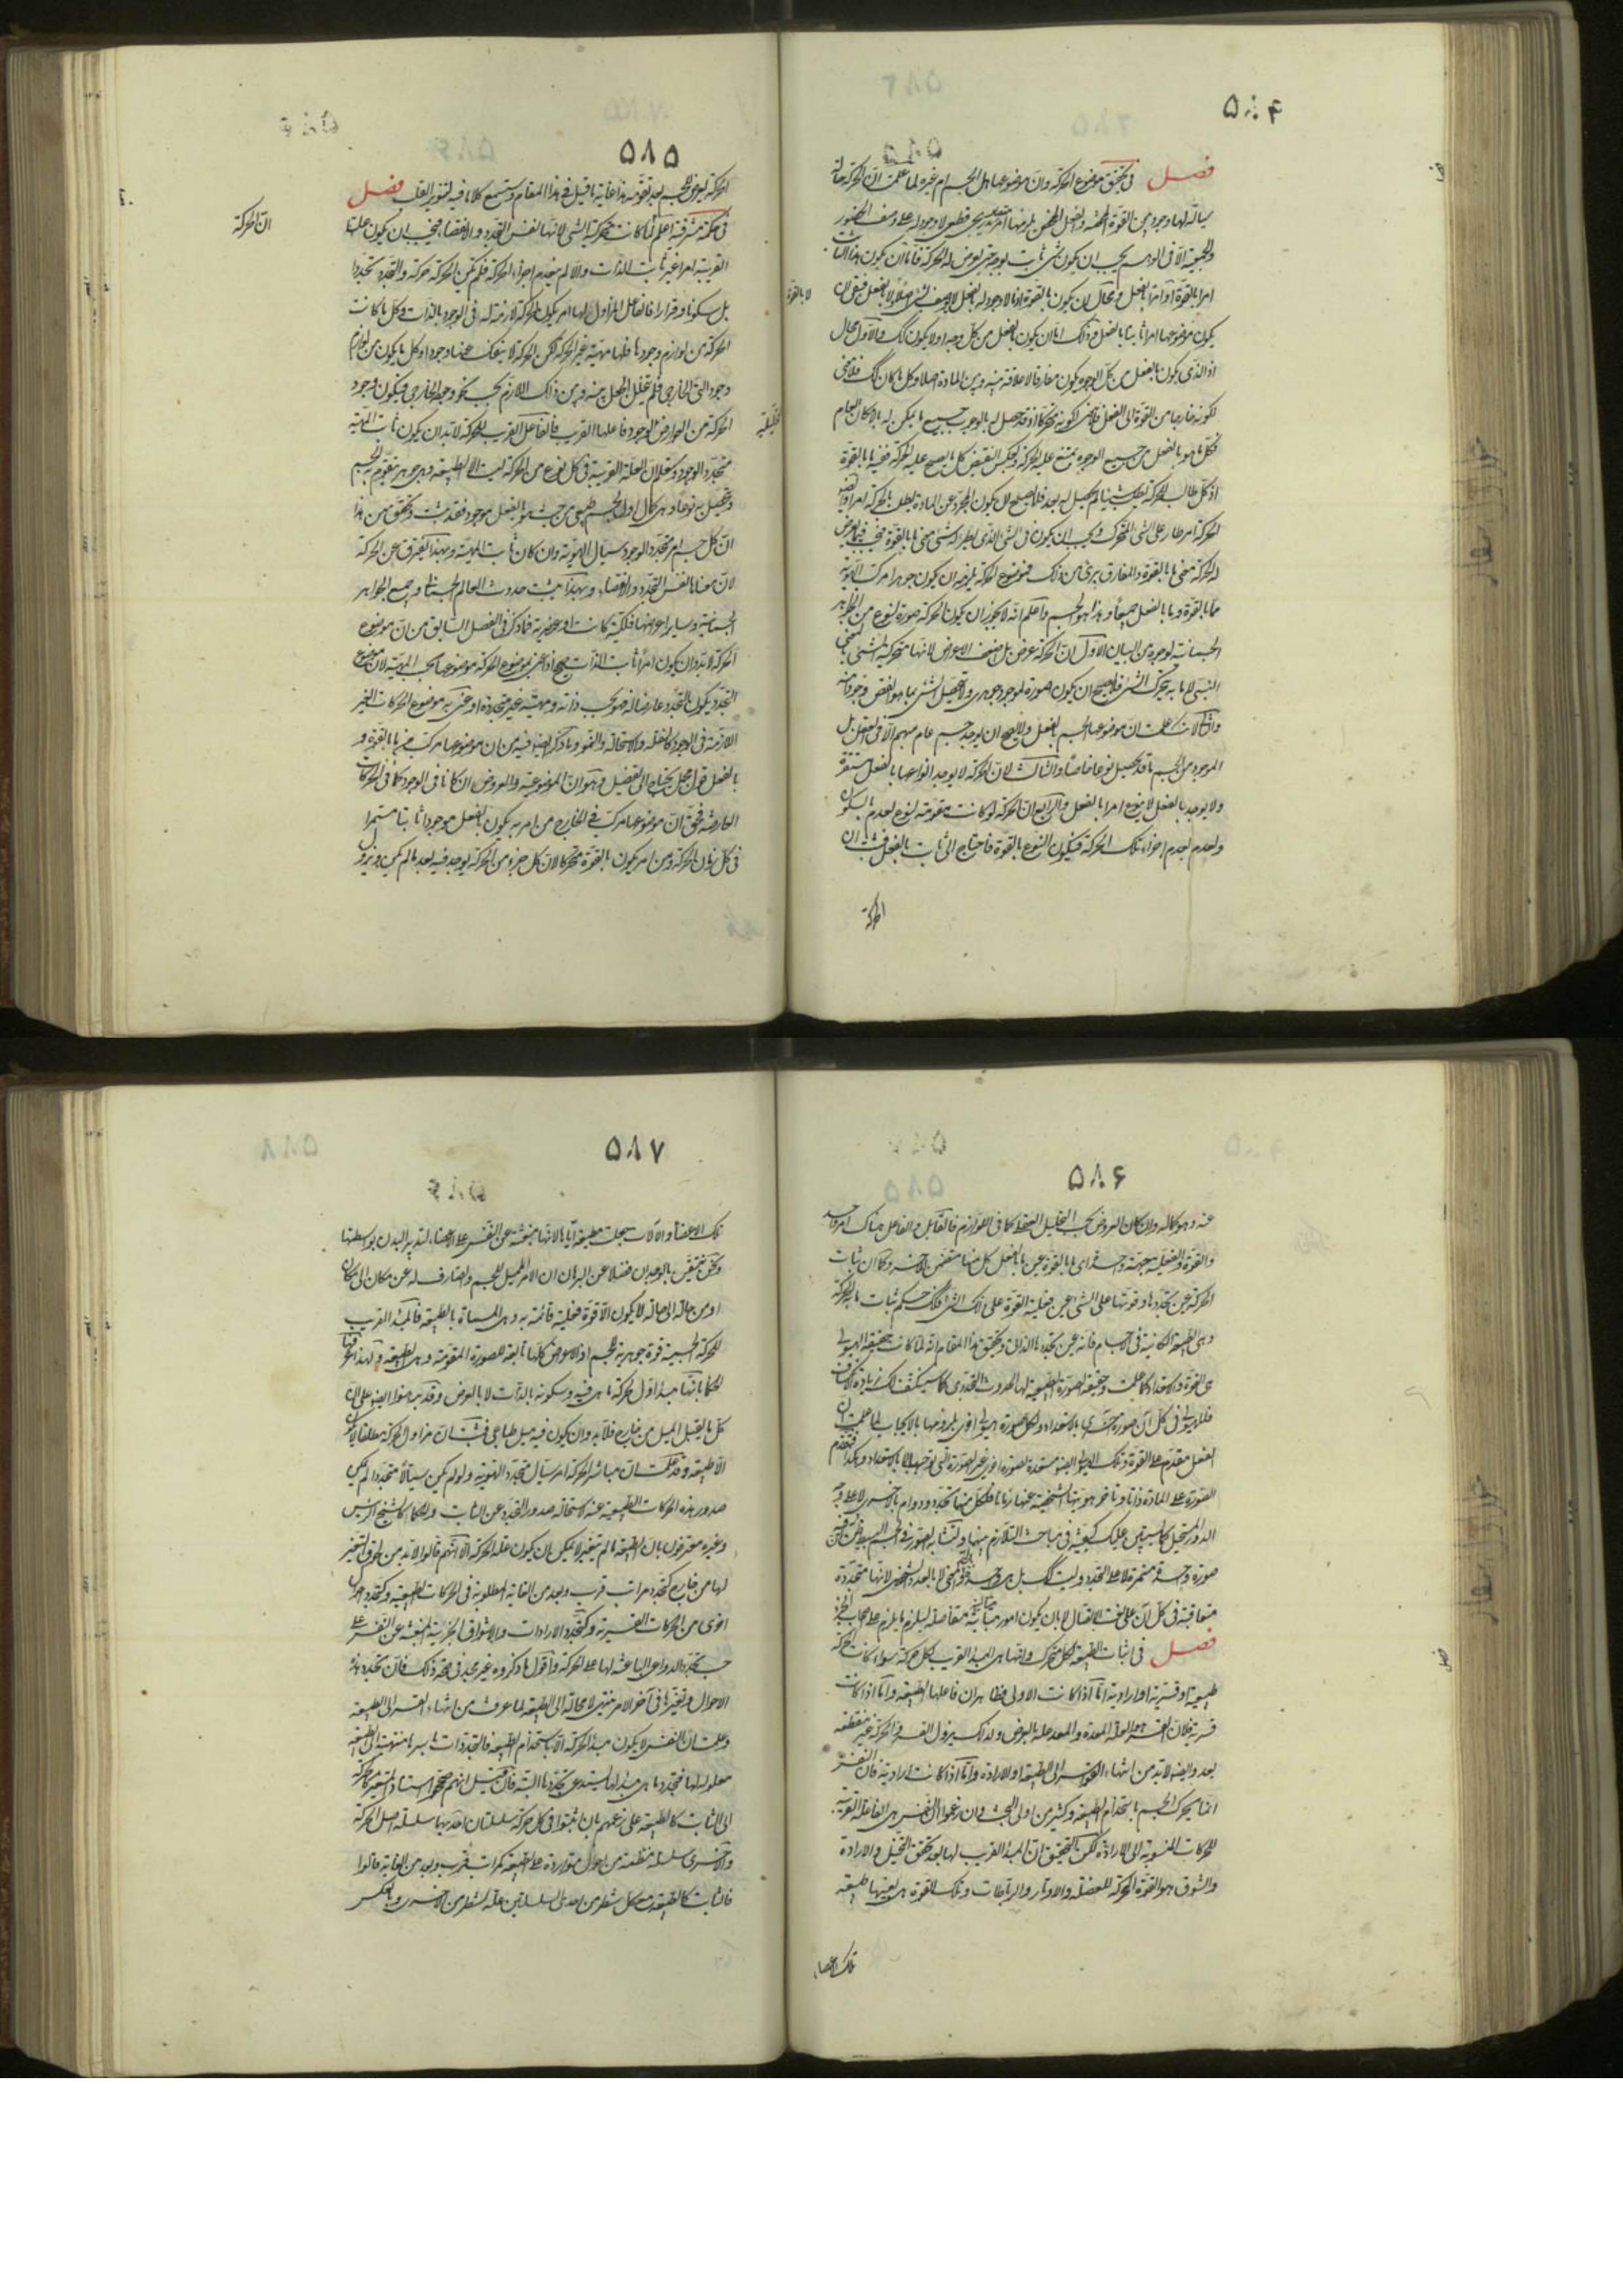 ۵۸۴
فصل فى تحقيق موضوع الحركة وان موضوعها هل الجسم ام غيره لما علمت ان الحركة حالة
سيالة لها وجود بين القوة المحضة والفعل المحض يلزمها امر تدريجى قطعى لا وجود له على وصف الحضور
والجمعية الا فى الوهم يجب ان يكون شىء ثابت بوجه حتى يعرض له الحركة فاما ان يكون هذا الثابت
امرا بالقوة او امرا بالفعل ومحال ان يكون بالقوة اذ ما لا وجود له بالفعل لا يوصف بشىء اصلا ولا بالفعل فبقى ان
لا بالقوة
يكون موضوعها امرا ثابتا بالفعل وذلك اما ان يكون بالفعل من كل وجه او لا يكون كك والاول محال
اذ الذى يكون بالفعل من كل الوجوه يكون مفارقا لا علاقة بينه وبين المادة اصلا وكل ما كان كك فلا معنى
لكونه خارجا من القوة الى الفعل فلا معنى لكونه متحركا اذ قد حصل له بالوجوب جميع ما يمكن له بالامكان العام
فكل ما هو بالفعل من جميع الوجوه يمتنع عليه الحركة وبعكس النقيض كل ما يصح عليه الحركة ففيه ما بالقوة
اذ كل طالب للحركة يطلب شيئا لم يحصل له بعد فلا يصلح ان يكون المجرد عن المادة يطلب بالحركة امرا وايضا
الحركة امر طار على الشىء المتحرك ويجب ان يكون فى الشىء الذى يطرأ له شىء معنى ما بالقوة فيجب فيما يعرض
له الحركة معنى ما بالقوة والمفارق برىء من ذلك فموضوع الحركة يلزمه ان يكون جوهرا مركب الهوية
مما بالقوة ومما بالفعل جميعا وهذا هو الجسم واعلم انه لا يجوز ان يكون الحركة صورة لنوع من الجواهر
الجسمانية لوجوه من البيان الاول ان الحركة عرض بل اضعف الاعراض لانها متحركية الشىء بالمعنى
النسبى لا ما به يتحرك الشىء فلا يصح ان يكون صورة لموجود جوهرى ولا يحصل الشىء بما هو انقص وجودا منه
والثانى انك علمت ان موضوعها الجسم بالفعل ولا يصح ان يوجد جسم عام مبهم الا فى العقل بل
الموجود من الجسم ما قد تحصل نوعا خاصا والثالث لان الحركة لا يوجد انواعها بالفعل مستقرة
ولا يوجد بالفعل لا ينوع امرا بالفعل والرابع ان الحركة لو كانت مقومة لنوع لعدم بالسكون
ولعدم بعدم اجزاء تلك الحركة فيكون النوع بالقوة فاحتاج الى ثابت بالفعل فثبت ان
الحركة
۵۸۵
الحركة يعرض للجسم بعد تقومه هذا غاية ما قيل فى هذا المقام وستسمع كلاما فيه لتنوير القلب فصل
فى حكمة مشرقية اعلم لما كانت متحركية الشىء لانها نفس التجدد والانقضاء فيجب ان يكون علتها
ان الحركة
القريبة امرا غير ثابت الذات والا لم ينعدم اجزاء الحركة فلم تكن الحركة حركة والتجدد تجددا
بل سكونا وقرارا فالفاعل المزاول لها امر يكون الحركة لازمة له فى الوجود بالذات وكل ما كانت
الحركة من لوازم وجوده فله مهية غير الحركة لكن الحركة لا ينفك عنها وجودا وكل ما يكون من لوازم
وجود الشىء الخارجى فلم يتخلل الجعل بينه وبين ذلك اللازم بحسب نحو وجوده الخارجى فيكون وجود
الحركة من العوارض لوجود فاعلها القريب فالفاعل القريب للحركة لابد ان يكون ثابت المهية
التحليلية
متجدد الوجود وستعلم ان العلة القريبة فى كل نوع من الحركة ليست الا الطبيعة وهى جوهر يتقوم به الجسم
ويتحصل به نوعا وهى كمال اول لجسم طبيعى من حيث هو بالفعل موجود فقد ثبت وتحقق من هذا
ان كل جسم امر متجدد الوجود سيال الهوية وان كان ثابت المهية وبهذا يفترق عن الحركة
لان معناها نفس التجدد والانقضاء وبهذا يثبت حدوث العالم الجسمانى وجميع الجواهر
الجسمانية وساير اعراضها فلكية كانت او عنصرية فما ذكر فى الفصل السابق من ان موضوع
الحركة لابد وان يكون امرا ثابت الذات صحيح اذا عنى بموضوع الحركة موضوعها بحسب المهية لان موضوع
التجدد يكون التجدد عارضا له فهو بحسب ذاته ومهيته غير متجددة او عنى به موضوع الحركات الغير
اللازمة فى الوجود كالنقلة والاستحالة والنمو وما ذكر ايضا فيه من ان موضوعها مركب مما بالقوة ومما
بالفعل قول مجمل يحتاج الى تفصيل وهو ان الموضوعية والعروض ان كانا فى الوجود كما فى الحركات
العارضة فحق ان موضوعها مركب فى الخارج من امر به يكون بالفعل موجودا ثابتا مستمرا
فى كل زمان الحركة ومن امر يكون بالقوة متحركا لان كل جزء من الحركة يوجد فيه بعد ما لم يكن ويزول
۵۸۶
عنه وهو بحاله وان كان العروض بحسب التحليل العقلى كما فى اللوازم فالقابل والفاعل هناك امر واحد
والقوة والفعلية جهة واحدة اى ما بالقوة عين ما بالفعل كل منهما متضمن لاخر وكما ان ثبات
الحركة عين تجددها وقوتها على الشىء عين فعلية القوة على ذلك الشىء فكذلك حكم ثبات ما به الحركة
وهى الطبيعة الكائنة فى الاجسام فانه عين تجددها الذاتى وتحقيق هذا المقام انه لما كانت حقيقة الهيولى
هى القوة والاستعداد كما علمت وحقيقة الصورة الطبيعية لها الحدوث التجددى كما سينكشف لك زيادة انكشاف
فللهيولى فى كل آن صورة اخرى بالاستعداد ولكل صورة هيولى اخرى يلزمها بالايجاب لما علمت ان
الفعل مقدم على القوة وتلك الهيولى ايضا مستعدة لصورة اخرى غير الصورة التى توجبها لا بالاستعداد وهكذا لتقدم
الصورة على المادة ذاتا وتاخر هويتها الشخصية عنها زمانا فلكل منهما تجدد ودوام بالاخرى لا على وجه
الدور المستحيل كما يستبين عليك كيفيته فى مباحث التلازم بينهما ولتشابه الصور فى الجسم البسيط ظن ان فيه
صورة واحدة مستمرة لا على التجدد وليست كك بل هى واحدة بالحد والمعنى لا بالعدد الشخصى لانها متجددة
متعاقبة فى كل آن على نعت الاتصال لا بان يكون امورا متباينة متفاصلة ليلزم ما يلزم على اصحاب الجزء
فصل فى اثبات الطبيعة لكل متحرك وانها هى المبدا القريب لكل حركة سواء كانت الحركة
طبيعية او قسرية او ارادية اما اذا كانت الاولى فظاهر ان فاعلها الطبيعة واما اذا كانت
قسرية فلان القسر هو العلة المعدة والمعد علة بالعرض ولذلك يزول القسر والحركة غير منقطعة
بعد وايضا لابد من انتهاء القواسر الى الطبيعة او الارادة واما اذا كانت ارادية فان النفس
انما يحرك الجسم باستخدام الطبيعة وكثير من اولى البحث وان زعموا ان النفس هى الفاعلة القريبة
للحركات المنسوبة الى الارادة لكن التحقيق ان المبدا القريب لها بعد تحقق التخيل والارادة
والشوق هو القوة المحركة للعضلة والاوتار والرباطات وتلك القوة هى بعينها طبيعة
تلك الاعضاء
۵۸۷
تلك الاعضاء والالات سجلت مطيعة اياها لانها منبعثة عن النفس على الاعضاء لتدبير البدن بواسطتها
ونحن متيقن بالوجدان فضلا عن البرهان ان الامر المميل للجسم والصارف له عن مكان الى مكان
او من حالة الى حالة لا يكون الا قوة فعلية قائمة به وهى المسماة بالطبيعة فالمبدا القريب
للحركة الجسمية قوة جوهرية للجسم اذ الاعراض كلها تابعة للصورة المقومة وهى الطبيعة ولهذا عرفها
الحكماء بانها مبدا اول لحركة ما هى فيه وسكونه بالذات لا بالعرض وقد برهنوا ايضا على ان
كل ما يقبل الميل من خارج فلابد وان يكون فيه ميل طباعى فثبت ان مزاول الحركة مطلقا لا يكون
الا طبيعة وقد علمت ان مباشر الحركة امر سيال متجدد الهوية ولو لم يكن سيالا متجددا لم يمكن
صدور هذه الحركات الطبيعية عنه لاستحالة صدور التجدد عن الثابت والحكماء كالشيخ الرئيس
وغيره معترفون بان الطبيعة ما لم تتغير لا يمكن ان يكون علة الحركة الا انهم قالوا لابد من لحوق التغير
لها من خارج كتجدد مراتب قرب وبعد من الغاية المطلوبة فى الحركات الطبيعية وكتجدد احوال
اخرى من الحركات القسرية وكتجدد الارادات والاشواق الجزئية المنبعثة عن النفس على
حسب تجدد الدواعى الباعثة لها على الحركة واقول ما ذكروه غير مجد فى هذه ذلك فان تجدد هذه
الاحوال وتغيرها فى آخر الامر منتهى لا محالة الى الطبيعة لما عرفت من انتهاء القسر الى الطبيعة
وعلمت ان النفس لا يكون مبدا الحركة الا باستخدام الطبيعة فالتجددات باسرها منتهية الى الطبيعة
معلولة لها فتجددها هى مبداها يستدعى تجددها البتة فان قيل انهم صححوا استناد المتغير كالحركة
الى الثابت كالطبيعة على زعمهم بان اثبتوا فى كل حركة سلسلتان احديهما سلسلة اصل الحركة
والاخرى سلسلة منتظمة من احوال متواردة على الطبيعة كمراتب قرب وبعد من الغاية قالوا
فالثابت كالطبيعة مع كل شطر من احدى السلسلتين علة لشطر من الاخرى وبالعكس